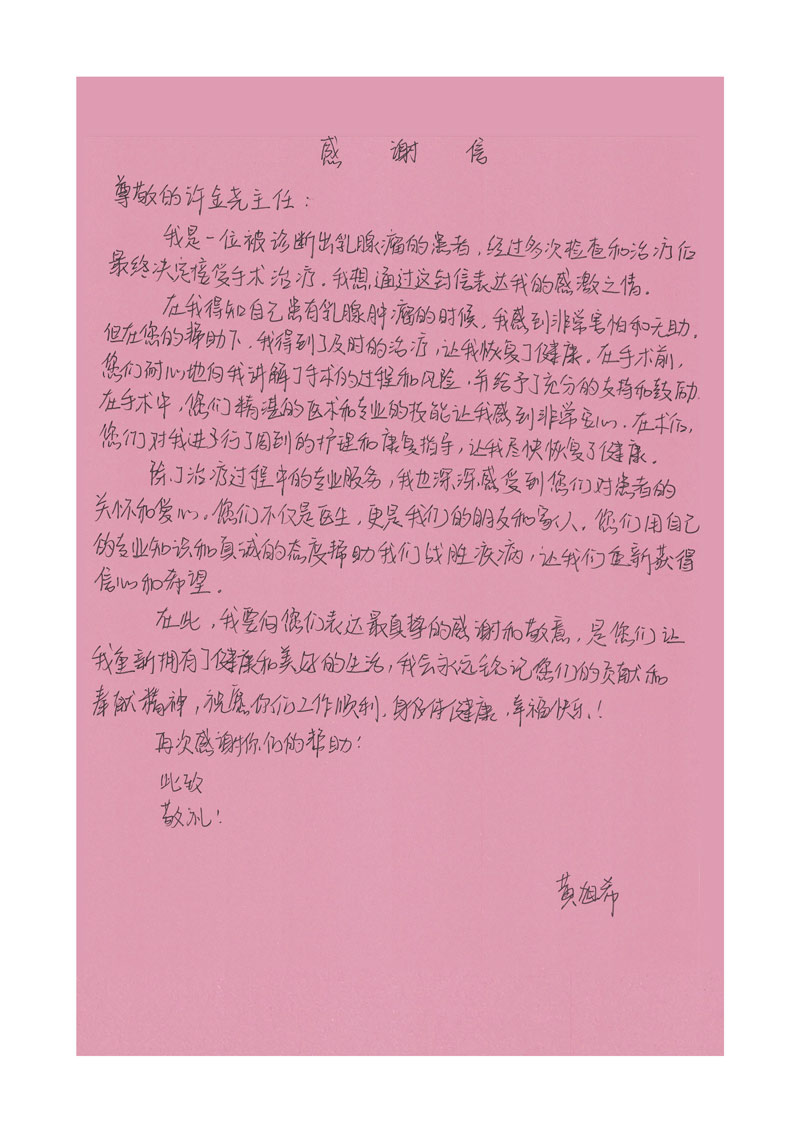 感谢信
尊敬的许金尧主任：
我是一位被诊断出乳腺瘤的患者，经过多次检查和治疗后
最终决定接受手术治疗。我想通过这封信表达我的感激之情。
在我得知自己患有乳腺肿瘤的时候，我感到非常害怕和无助。
但在您的帮助下，我得到了及时的治疗，让我恢复了健康。在手术前，
您们耐心地向我讲解了手术的过程和风险，并给予了充分的支持和鼓励。
在手术中，您们精湛的医术和专业的技能让我感到非常安心。在术后，
您们对我进了行了周到的护理和康复指导，让我尽快恢复了健康。
除了治疗过程中的专业服务，我也深深感受到您们对患者的
关怀和爱心。您们不仅是医生，更是我们的朋友和家人。您们用自己
的专业知识和真诚的态度帮助我们战胜疾病，让我们重新获得
信心和希望。
在此，我要向您们表达最真挚的感谢和敬意，是您们让
我重新拥有了健康和美好的生活，我会永远铭记您们的贡献和
奉献精神，祝愿你们工作顺利，身体健康，幸福快乐！
再次感谢你们的帮助！
此致
敬礼！
黄旭希